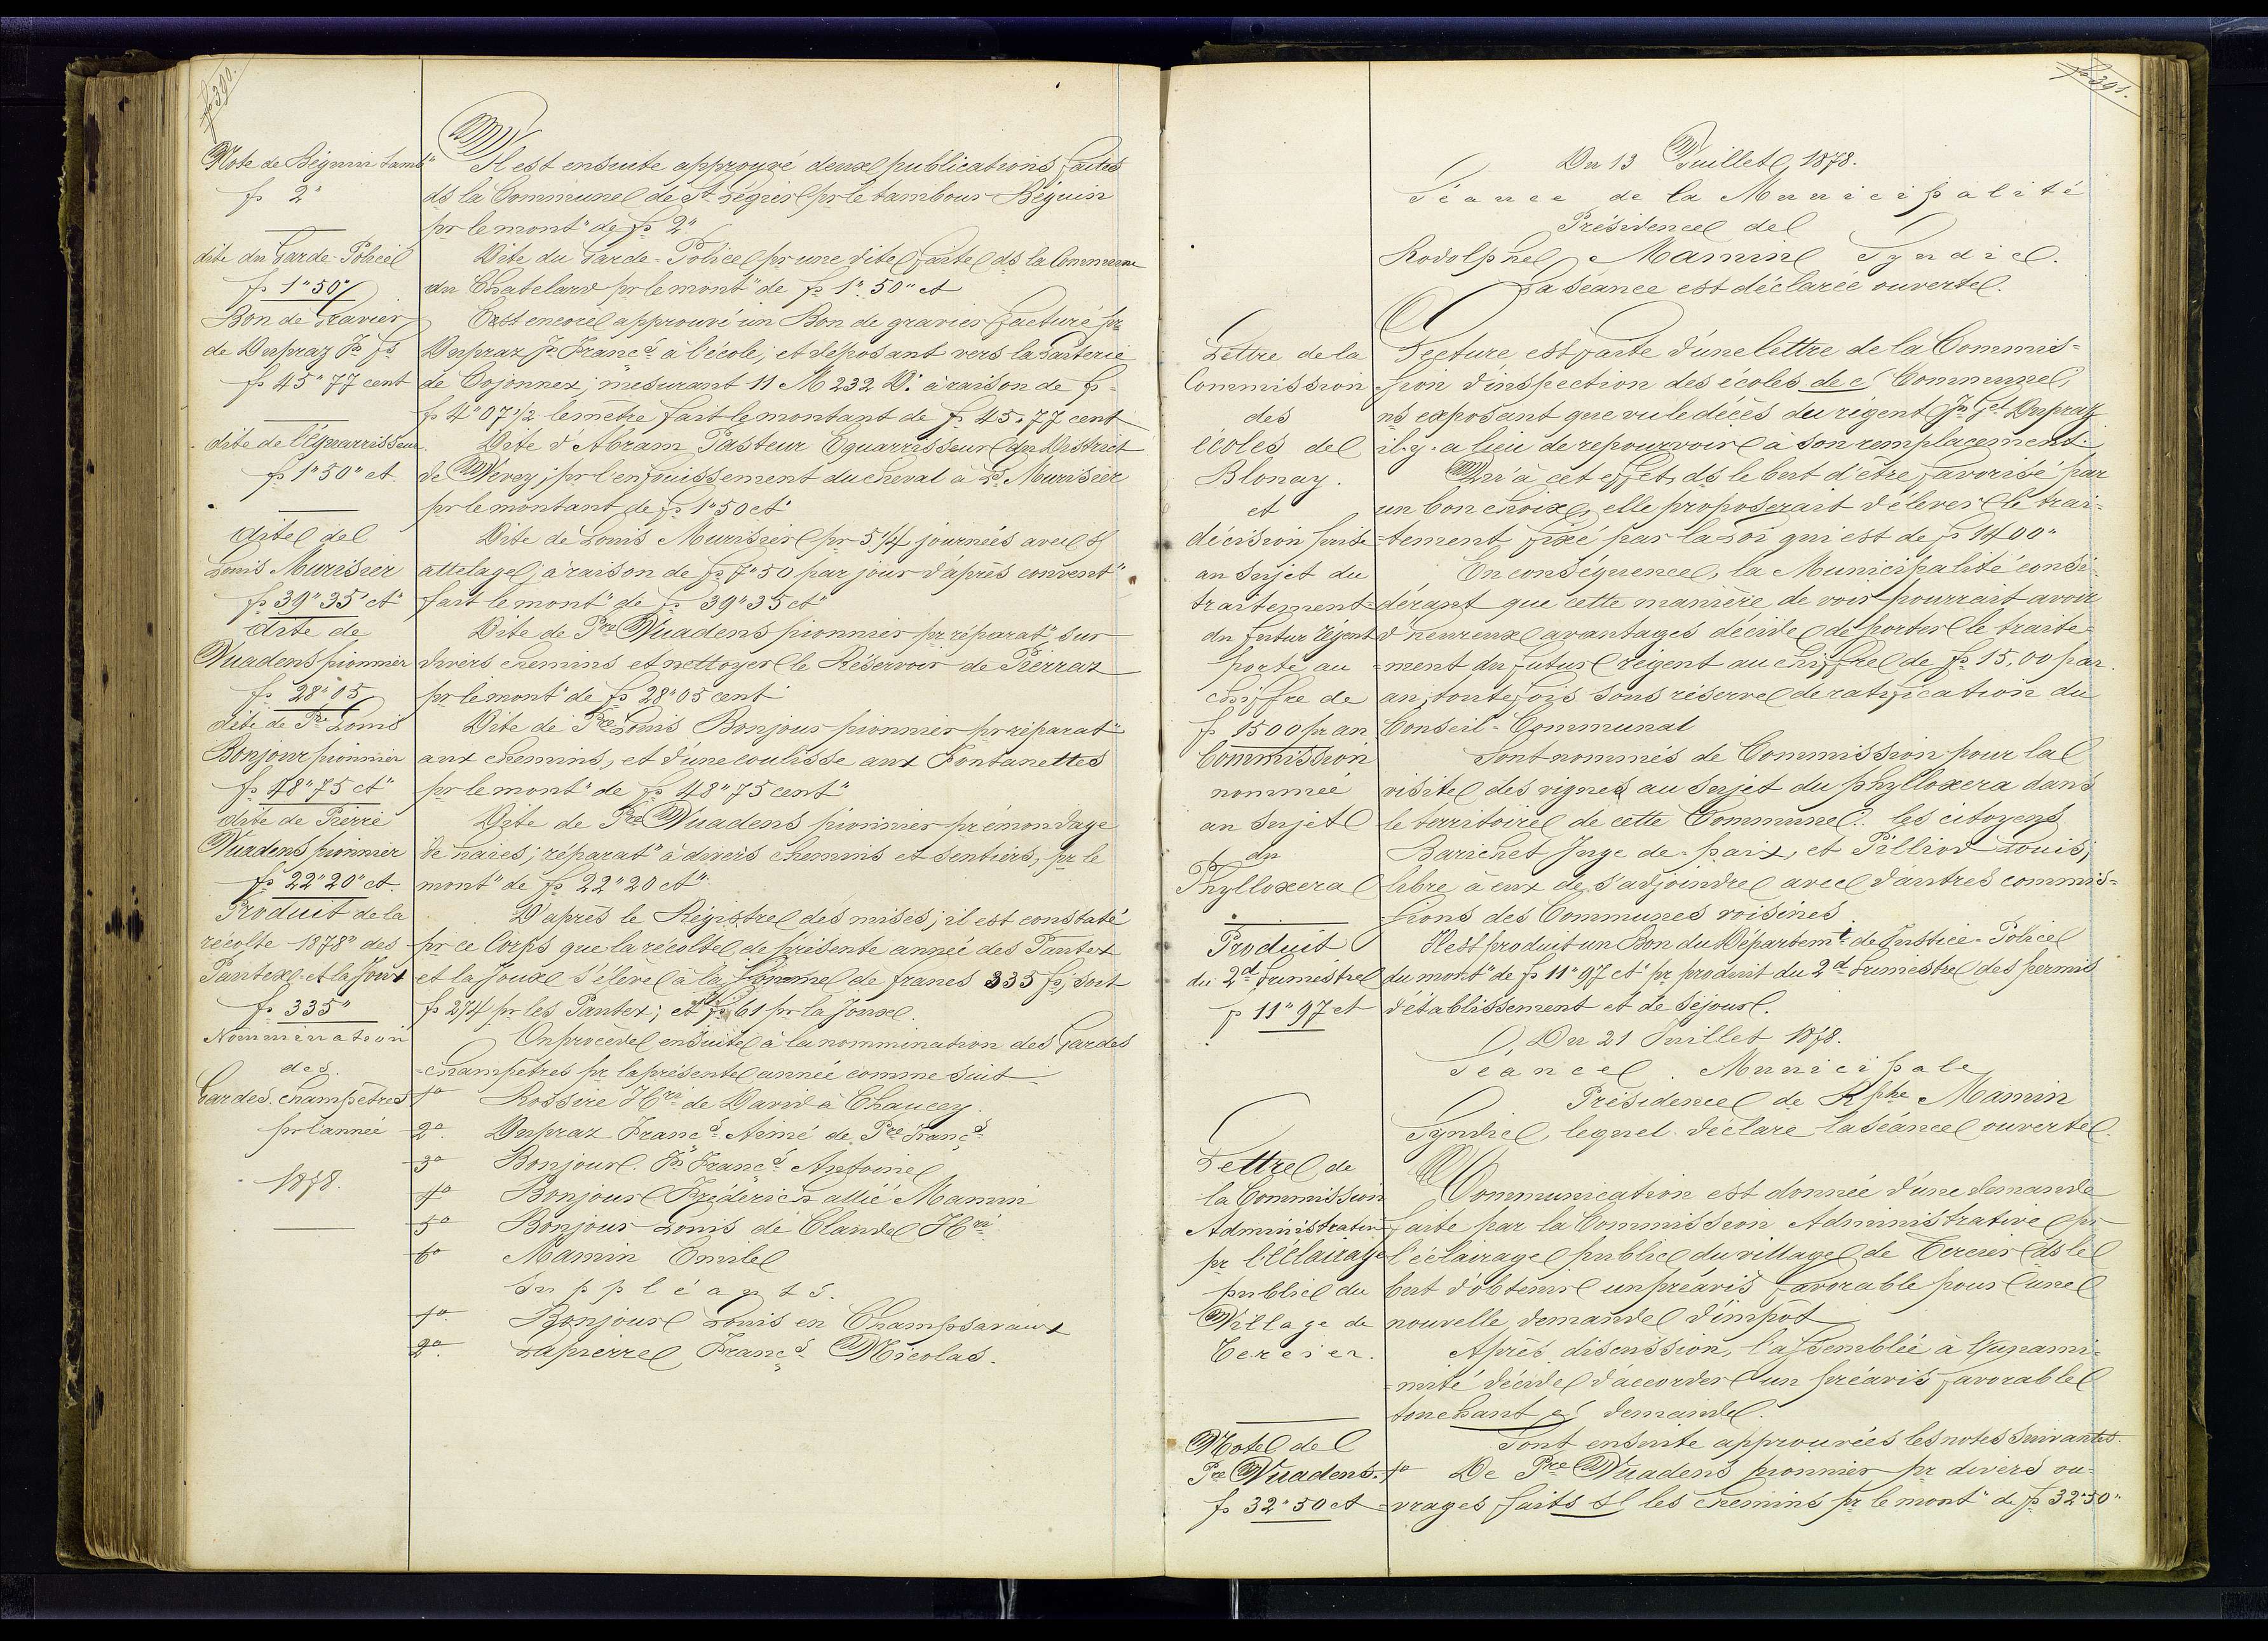 fo 390.
Note de Béguin tamb"
fs 2"
dite du Garde-Police
fs 1"50"
Bon de Gravier
de Dupraz Jn Fs
fs 45"77 cent
dite de l'Equarrisseur
fs 1"50" ct
dite de
Louis Murisier
fs 39"35 ct"
dite de
Vuadens pionnier
fs 28"05
dite de Pre Louis
Bonjour pionnier
fs 48"75 ct"
dite de Pierre
Vuadens pionnier
fs 22"20" ct.
Produit de la
récolte 1878" des
Pantex et la Joux
fs 335"
Nommination
des
Gardes. Champêtres
pr l'année
1878.
Il est ensuite approuvé deux publications faites
ds la Commune de St Légier pr le tambour Béguin
pr le mont" de fs 2"
Dite du Garde-Police pr une dite faite ds la Commune
du Chatelard pr le mont" de fs 1"50" ct
Est encore approuvé un Bon de gravier facturé pr
Dupraz Jn Franc̤s à l'école, et déposant vers la Laiterie
de Cojonnex, mesurant 11 M 232 D. à raison de fs-
fs 4"07 1/2 le mètre fait le montant de fs 45,77 cent
Dite d'Abram Pasteur Equarrisseur du District
de Vevey, pr l'enfouissement du cheval à Ls Murisier
pr le montant de fs 1"50 ct"
Dite de Louis Murisier pr 5 1/4 journées avec st
attelage, à raison de fs 7"50 par jour d'après convent"
fait le mont" de fs 39"35 ct"
Dite de Pre Vuadens pionnier pr réparat" sur
divers chemins et nettoyer le Réservoir de Pierraz
pr le mont" de fs 28"05 cent"
Dite de Pre Louis Bonjour pionnier pr réparat"
aux chemins, et d'une coulisse aux Fontanettes
pr le mont" de fs 48"75 cent"
Dite de Pre Vuadens pionnier pr émondage
de haies; réparat" à divers chemins et sentiers, pr le
mont" de fs 22"20 ct"
D'après le Régistre des mises, il est constaté
pr ce Corps que la récolte de présente année des Pantex
et la Joux s'élève à la Somme de francs 335 fs, soit
fs 274 pr les Pantex; et fs 61 pr la Joux.
On procède ensuite à la nommination des Gardes
=champêtres pr la présente année comme suit
1o Rossire Hri de David à Chaucey.
2o. Dupraz Francs Aimé de Pre Francs
3o Bonjour Jn Francs Antoine
4o Bonjour Frédérich allié Mamin
5o Bonjour Louis de Claude Hri
6o Mamin Emile
Suppléants.
1o. Bonjour Louis en Champsavaux
2o. Lapierre Francs Nicolas.
fo 391.
Du 13 Juillet 1878.
Séance de la Municipalité
Présidence de
Rodolphe Mamin Syndic.
La séance est déclarée ouverte.
Lettre de la
Commission
des
écoles de
Blonay.
et
décision prise
au sujet du
traitement
du futur régent
porté au
chiffre de
fs 1500 pr an
Commission
nommée
au sujet
du
Phylloxera
Produit
du 2d trimestre
fs 11"97 ct
Lecture est faite d'une lettre de la Commis=
=sion d'inspection des écoles de ct Commune,
ns exposant que vu le décès du régent Jn Gel Dupraz
il y a lieu de repourvoir à son remplacement.
Qu'à cet effet, ds le but d'être favorisé par
un bon choix, elle proposerait d'élever le trai=
=tement fixé par la Loi qui est de fs 1400"
En conséquence, la Municipalité consi=
dérant que cette manière de voir pourrait avoir
d'heureux avantages décide de porter le traite=
=ment du futur régent au chiffre de fs 15,00 par
an, toutefois sous réserve de ratification du
Conseil-Communal
Sont nommés de Commission pour la
visite des vignes au sujet du phylloxera dans
le territoire de cette Commune: les citoyens
Barichet Juge de-paix, et Pilliod Louis,
libre à eux de s'adjoindre avec d'autres commis=
=sions des Communes voisines.
Il est produit un Bon du Départemt de Justice-Police
du mont" de fs 11"97 ct" pr produit du 2d trimestre des permis
d'établissement et de séjour.
Du 21 Juillet 1878.
Séance Municipale
Présidence de Rphe Mamin
Syndic, lequel déclare la séance ouverte.
Lettre de
la Commission
Administrative
pr l'Eclairage
public du
Village de
Tercier.
Note de
Pre Vuadens.
fs 32"50 ct
Communication est donnée d'une demande
faite par la Commission Administrative pr
l'éclairage public du village de Tercier ds le
but d'obtenir un préavis favorable pour une
nouvelle demande d'impôt
Après discussion, l'assemblée à l'unani=
=mité décide d'accorder un préavis favorable
touchant ct demande.
Sont ensuite approuvées les notes suivantes.
1o De Pre Vuadens pionnier pr divers ou=
=vrages faits st les chemins pr le mont" de fs 32"50"